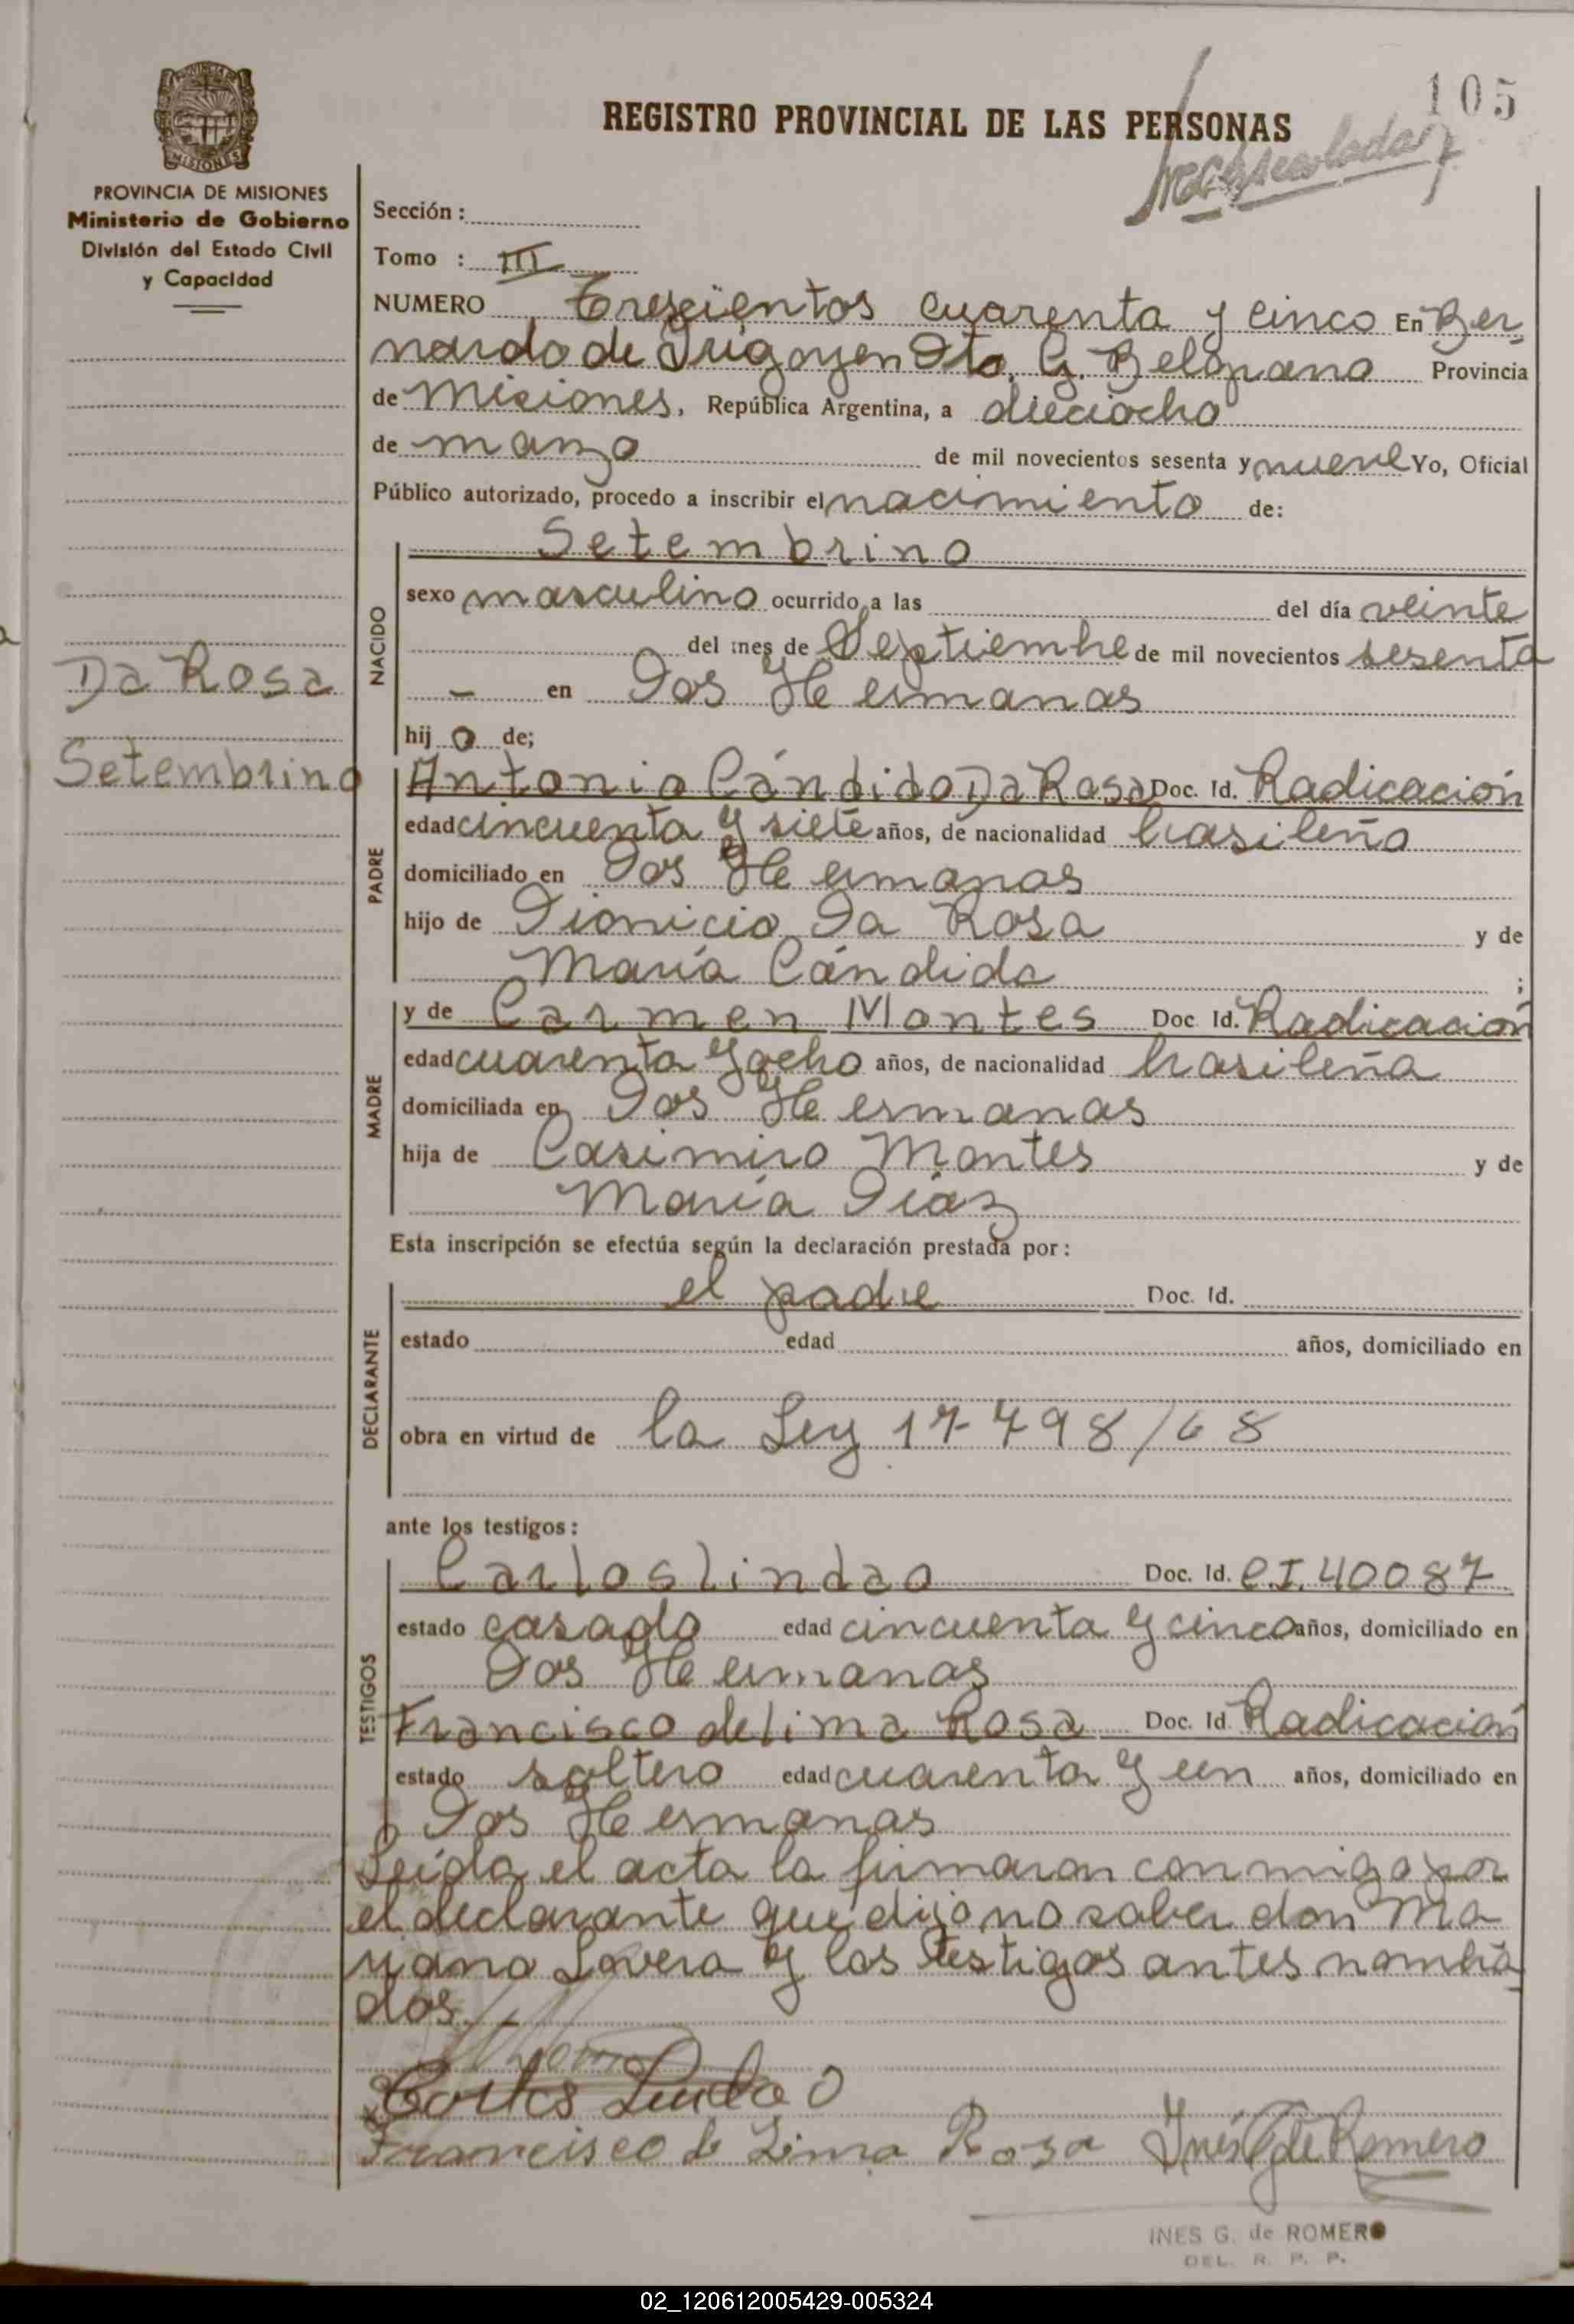 105
REGISTRO PROVINCIAL DE LAS PERSONAS
PROVINCIA DE MISIONES
Ministerio de Gobierno
División del Estado Civil
y Capacidad
Sección :
Tomo : III
NUMERO Trescientos cuarenta y cinco En Ber-
nardo de Irigoyen Dto. G. Belgrano Provincia
de Misiones, República Argentina, a dieciocho
de marzo de mil novecientos sesenta y nueve Yo, Oficial
Público autorizado, procedo a inscribir el nacimiento de:
NACIDO
Setembrino
sexo masculino ocurrido a las del día veinte
del mes de Septiembre de mil novecientos sesenta
- en Dos Hermanas
hijo de;
Da Rosa
Setembrino
PADRE
Antonio Cándido Da Rosa Doc. Id. Radicación
edad cincuenta y siete años, de nacionalidad brasileño
domiciliado en Dos Hermanas
hijo de Dionicio Da Rosa y de
María Cándida ;
MADRE
y de Carmen Montes Doc. Id. Radicación
edad cuarenta y ocho años, de nacionalidad brasileña
domiciliada en Dos Hermanas
hija de Casimiro Montes y de
María Diaz
Esta inscripción se efectúa según la declaración prestada por :
DECLARANTE
el padre Doc. Id.
estado edad años, domiciliado en
obra en virtud de la Ley 17498/68
ante los testigos :
TESTIGOS
Carlos Lindao Doc. Id. CI. 40087
estado casado edad cincuenta y cinco años, domiciliado en
Dos Hermanas
Francisco de lima Rosa Doc. Id. Radicación
estado soltero edad cuarenta y un años, domiciliado en
Dos Hermanas
Leída el acta la firmaron conmigo por
el declarante que dijo no saber don Ma
riano Lovera y los testigos antes nombra-
dos.-
Carlos Lindao
Francisco de Lima Rosa Inés G de Romero
INES G. de ROMERO
DEL. R. P. P.
02_120612005429-005324